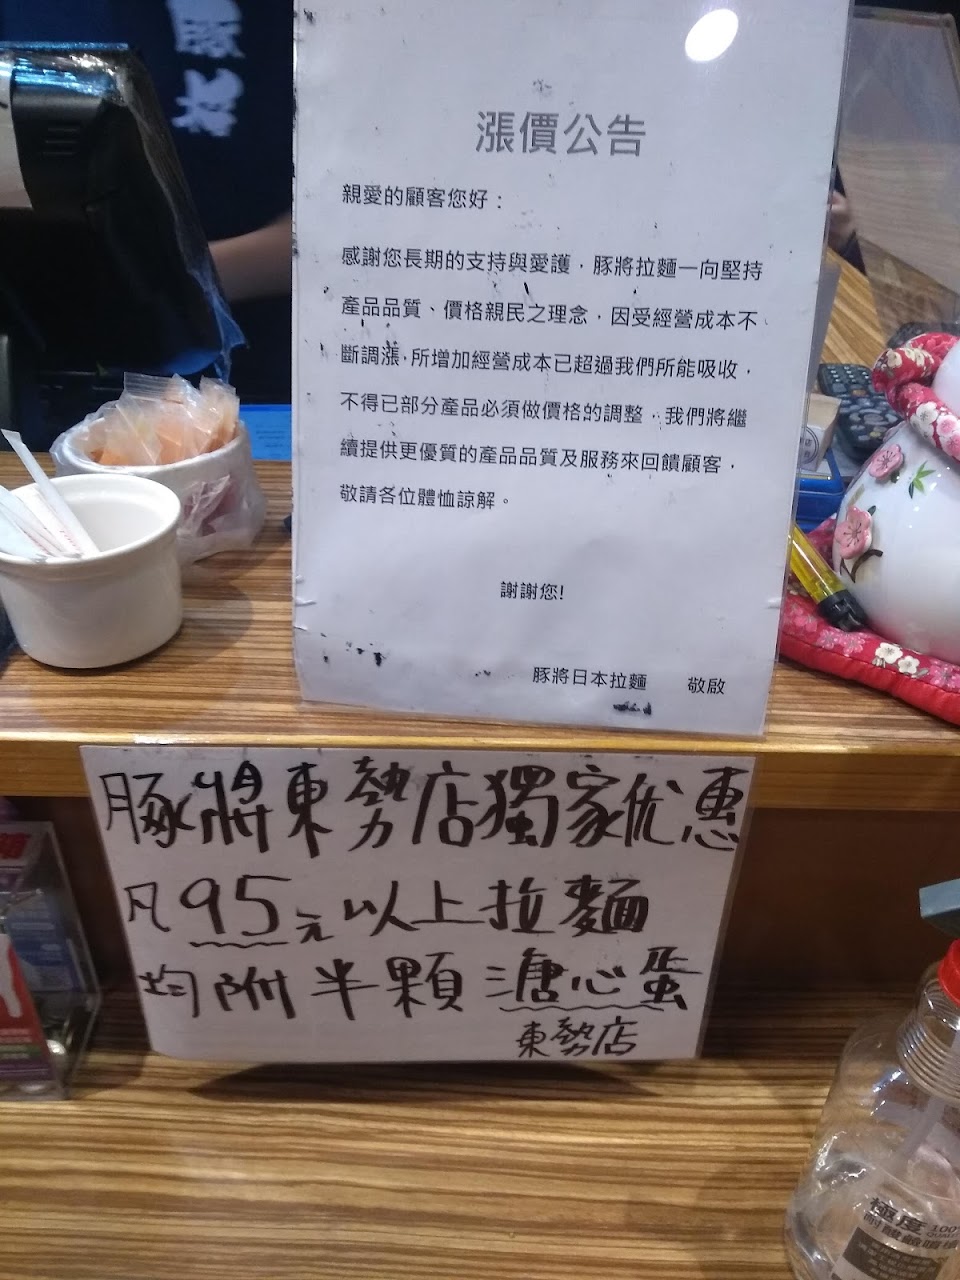 豚將
漲價公告
親愛的顧客您好：
感謝您長期的支持與愛護，豚將拉麵一向堅持
產品品質、價格親民之理念，因受經營成本不
斷調漲，所增加經營成本已超過我們所能吸收，
不得已部分產品必須做價格的調整，我們將繼
續提供更優質的產品品質及服務來回饋顧客，
敬請各位體恤諒解。
謝謝您!
豚將日本拉麵 敬啟
豚將東勢店獨家优惠
凡95元以上拉麵
均附半顆溏心蛋
東勢店
極度 100%
耐酸鹼噴